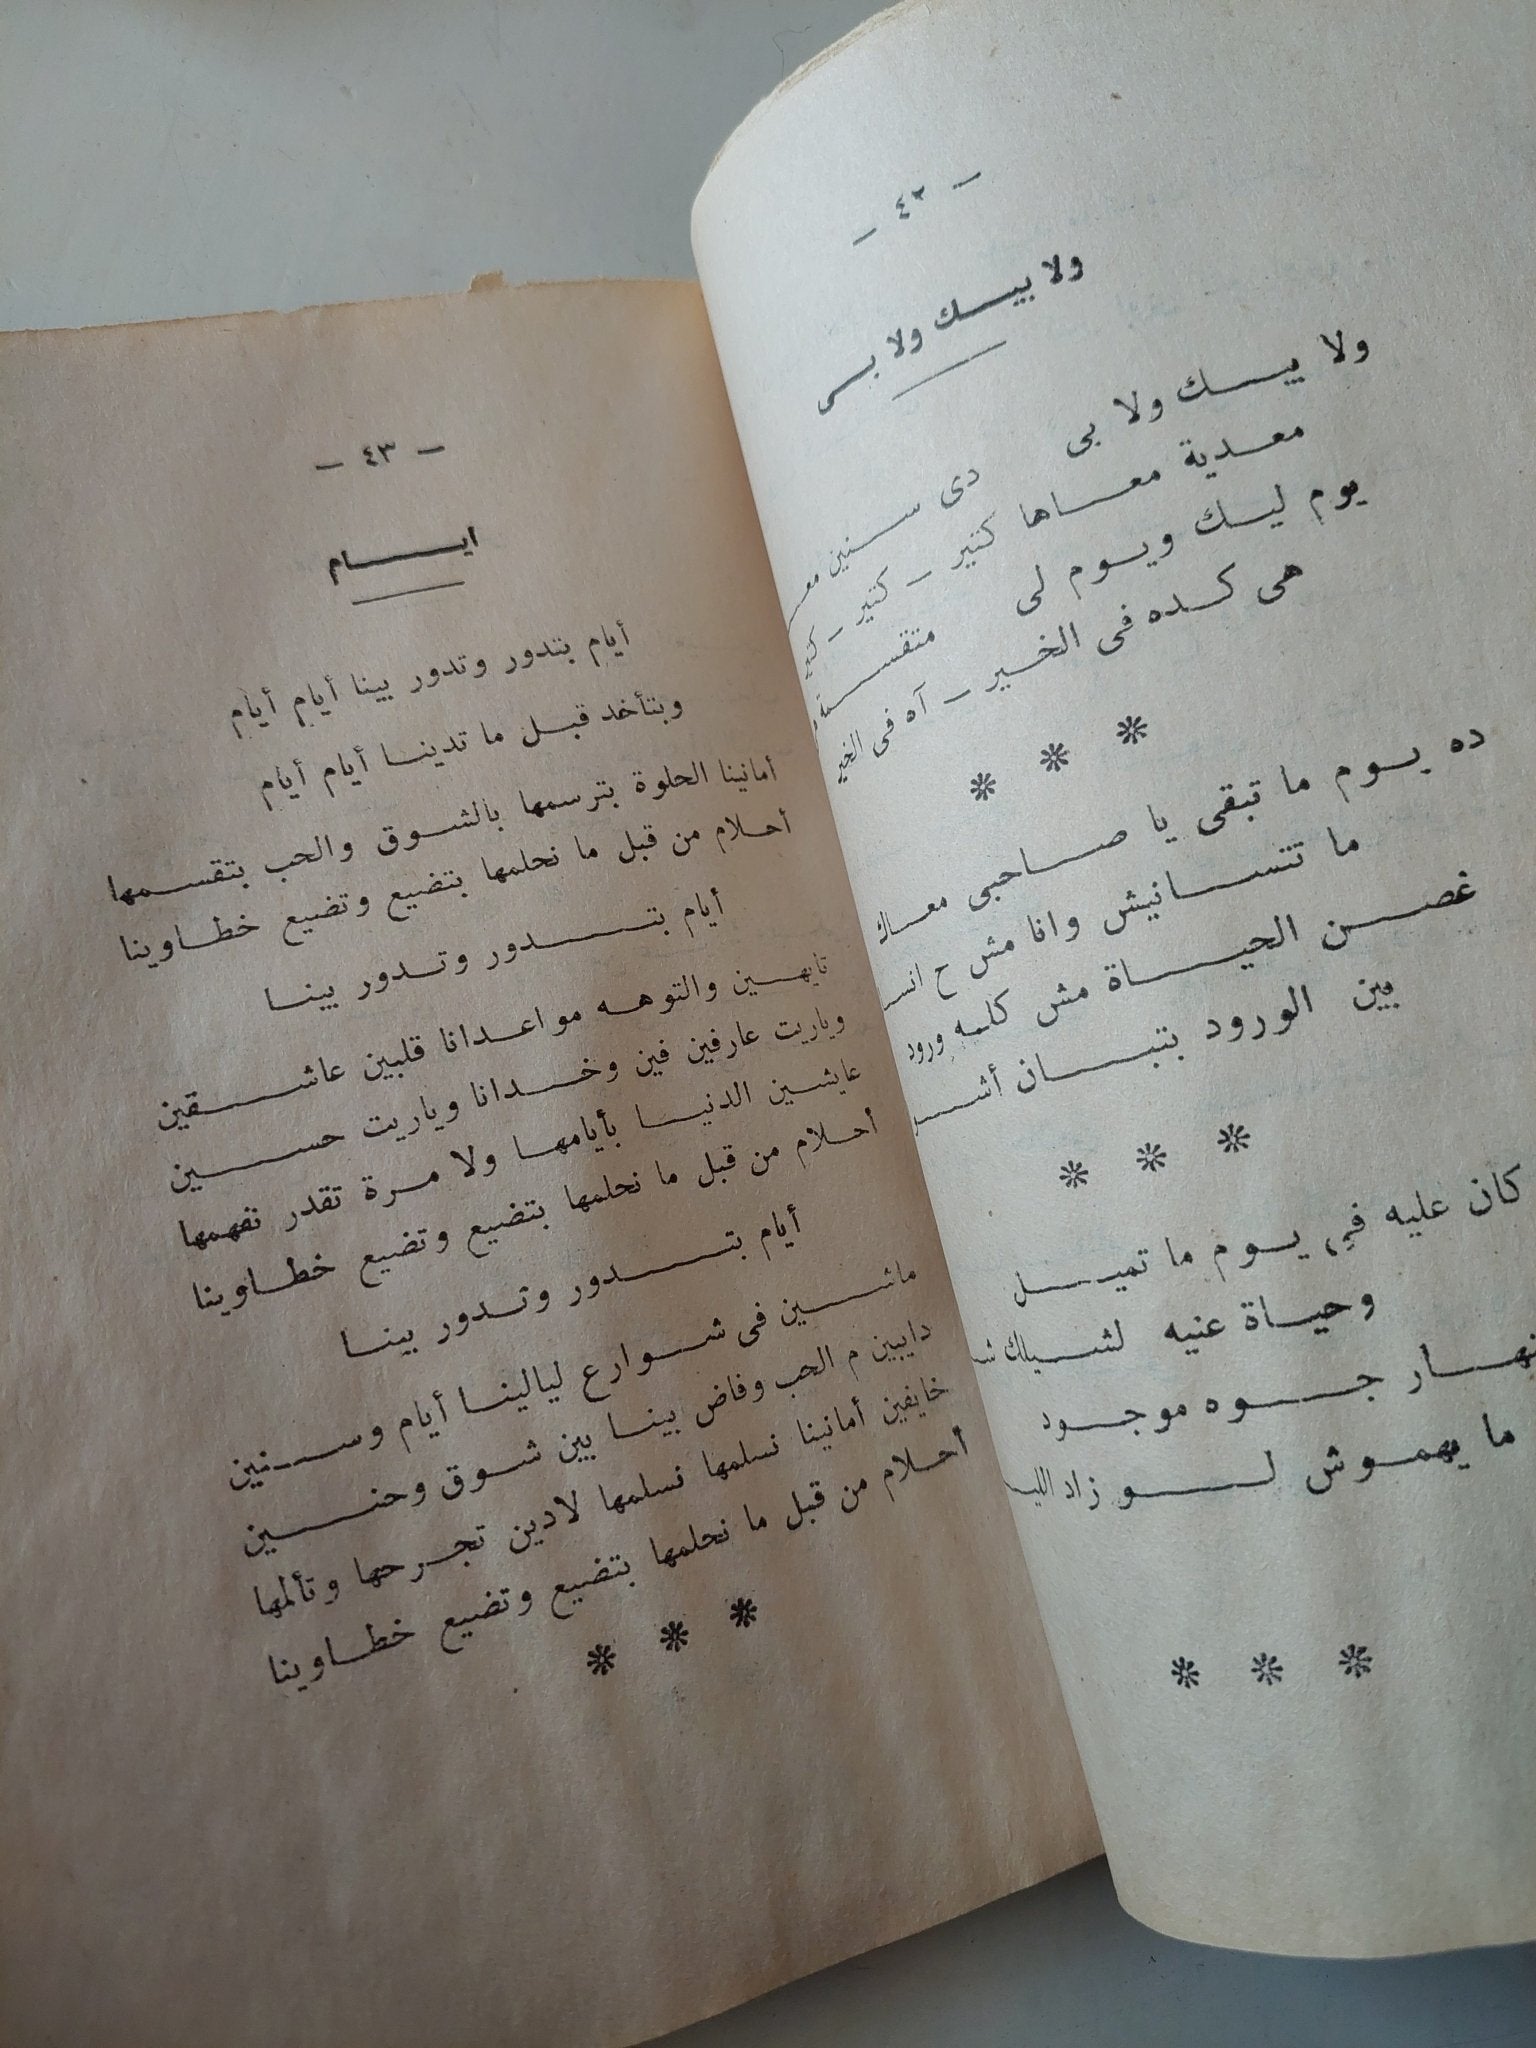 - ٤٢ -
ولا بيك ولا بى
ولا بيك ولا بى
دى سنين
معدية معاها كتير - كتير -
يوم ليك ويوم لى
هى كده فى الخير - آه فى الخير
* * *
ده يوم ما تبقى يا صاحبى معاك
ما تتسانيش وانا مش ح
غصن الحياة مش كلمه ورود
بين الورود بتبان
* * *
كان عليه فى يوم ما تميل
وحياة عنيه لشيلك
جوه موجود
ما يهموش لو زاد
* * *
- ٤٣ -
ايام
أيام بتدور وتدور بينا أيام أيام
وبتأخد قبل ما تدينا أيام أيام
أمانينا الحلوة بترسمها بالشوق والحب بتقسمها
أحلام من قبل ما نحلمها بتضيع وتضيع خطاوينا
أيام بتدور وتدور بينا
تايهين والتوهه مواعدانا قلبين عاشقين
وياريت عارفين فين وخدانا وياريت حسين
عايشين الدنيا بأيامها ولا مرة تقدر تفهمها
أحلام من قبل ما نحلمها بتضيع وتضيع خطاوينا
أيام بتدور وتدور بينا
ماشين فى شوارع ليالينا أيام وسنين
دايبين م الحب وفاض بينا بين شوق وحنين
خايفين أمانينا نسلمها نسلمها لادين تجرحها وتألمها
أحلام من قبل ما نحلمها بتضيع وتضيع خطاوينا
* * *